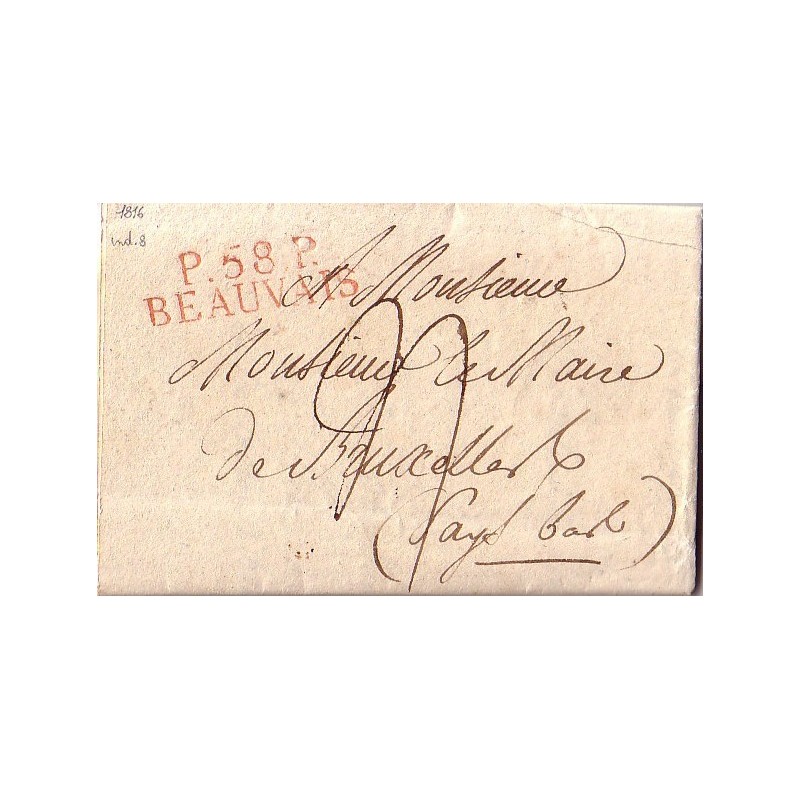 1816
ind. 8
P. 58 P.
BEAUVAIS
A Monsieur
Monsieur le Maire
de Bruxelles
(Pays bas)